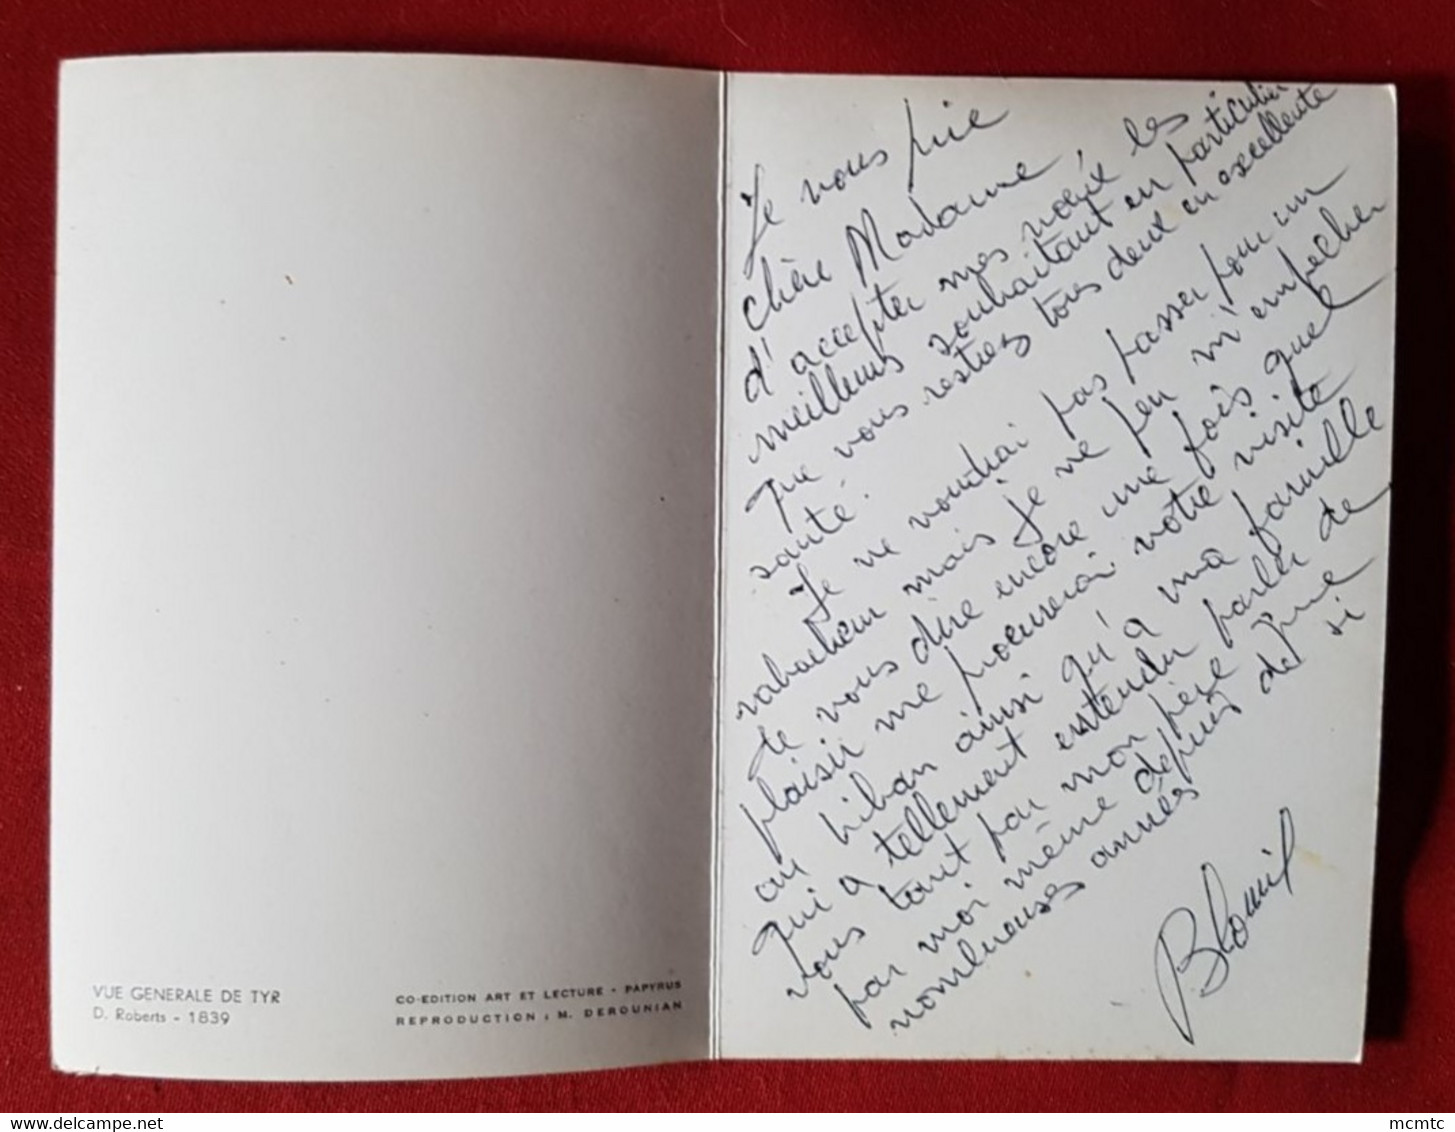 VUE GENERALE DE TYR
D. Roberts - 1839
CO-EDITION ART ET LECTURE - PAPYRUS
REPRODUCTION : M. DEROUNIAN
Je vous prie
chère Madame
d'accepter mes vœux les
meilleurs souhaitant en particulier
que vous restiez tous deux en excellente
santé.
Je ne voudrai pas passer pour un
rabacheur mais je ne peu m'empecher
de vous dire encore une fois quel
plaisir me procurerai votre visite
au Liban ainsi qu'à ma famille
qui a tellement entendu parler de
vous tant par mon père que
par moi même depuis de si
nombreuses années
mcmtc